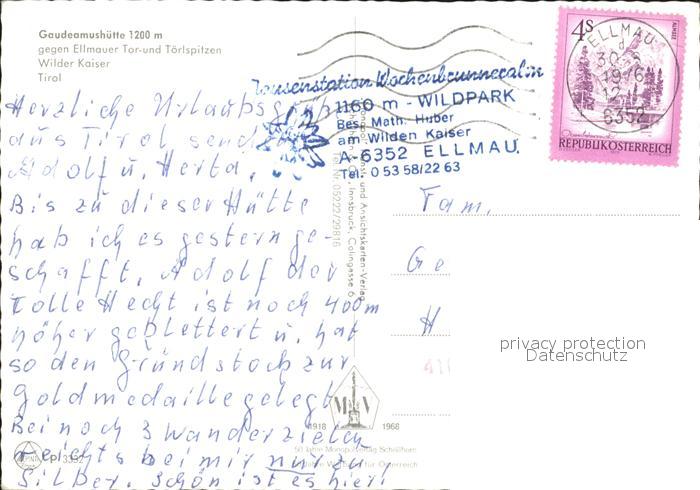 Gaudeamushütte 1200 m
gegen Ellmauer Tor-und Törlspitzen
Wilder Kaiser
Tirol
Herzliche Urlaubsgrüße
aus Tirol, send
Adolf u. Herta.
Bis zu dieser Hütte
hab ich es gestern ge-
schafft, Adolf der
tolle Hecht ist noch 400m
höher geklettert u. hat
so den Grundstock zur
Goldmedaille gelegt
Bei noch 3 Wanderzielen
reichts bei mir nur zu
Silber. Schön ist es hier!
Jausenstation Wochenbrunneralm
1160 m - WILDPARK
Bes. Math. Huber
am Wilden Kaiser
A-6352 ELLMAU.
Tel. 0 53 58/22 63
4s
ELLMAU
6352
REPUBLIK ÖSTERREICH
und Ansichtskarten-Verlag
Innsbruck, Colingasse 6
05222/29816
Fam.
Ge
H
privacy protection
Datenschutz
M V
1918 1968
50 Jahre Monopolverlag Schöllhorn
für Österreich